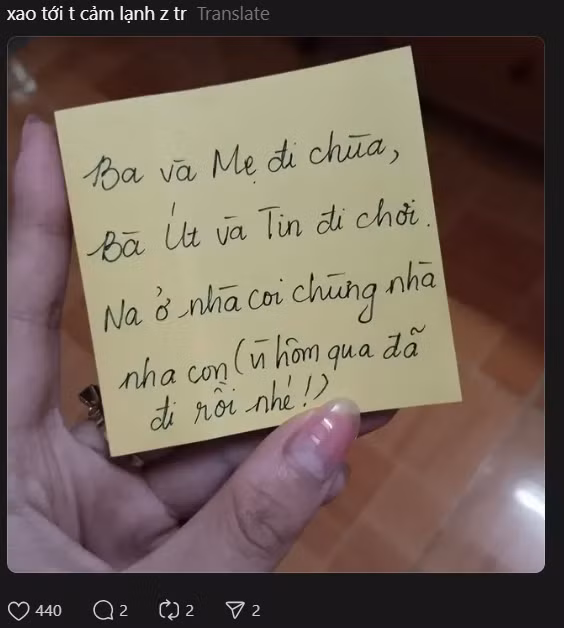 xao tới t cảm lạnh z tr Translate
Ba và Mẹ đi chùa,
Bà Út và Tin đi chơi.
Na ở nhà coi chừng nhà
nha con (vì hôm qua đã
đi rồi nhé!)
440 2 2 2